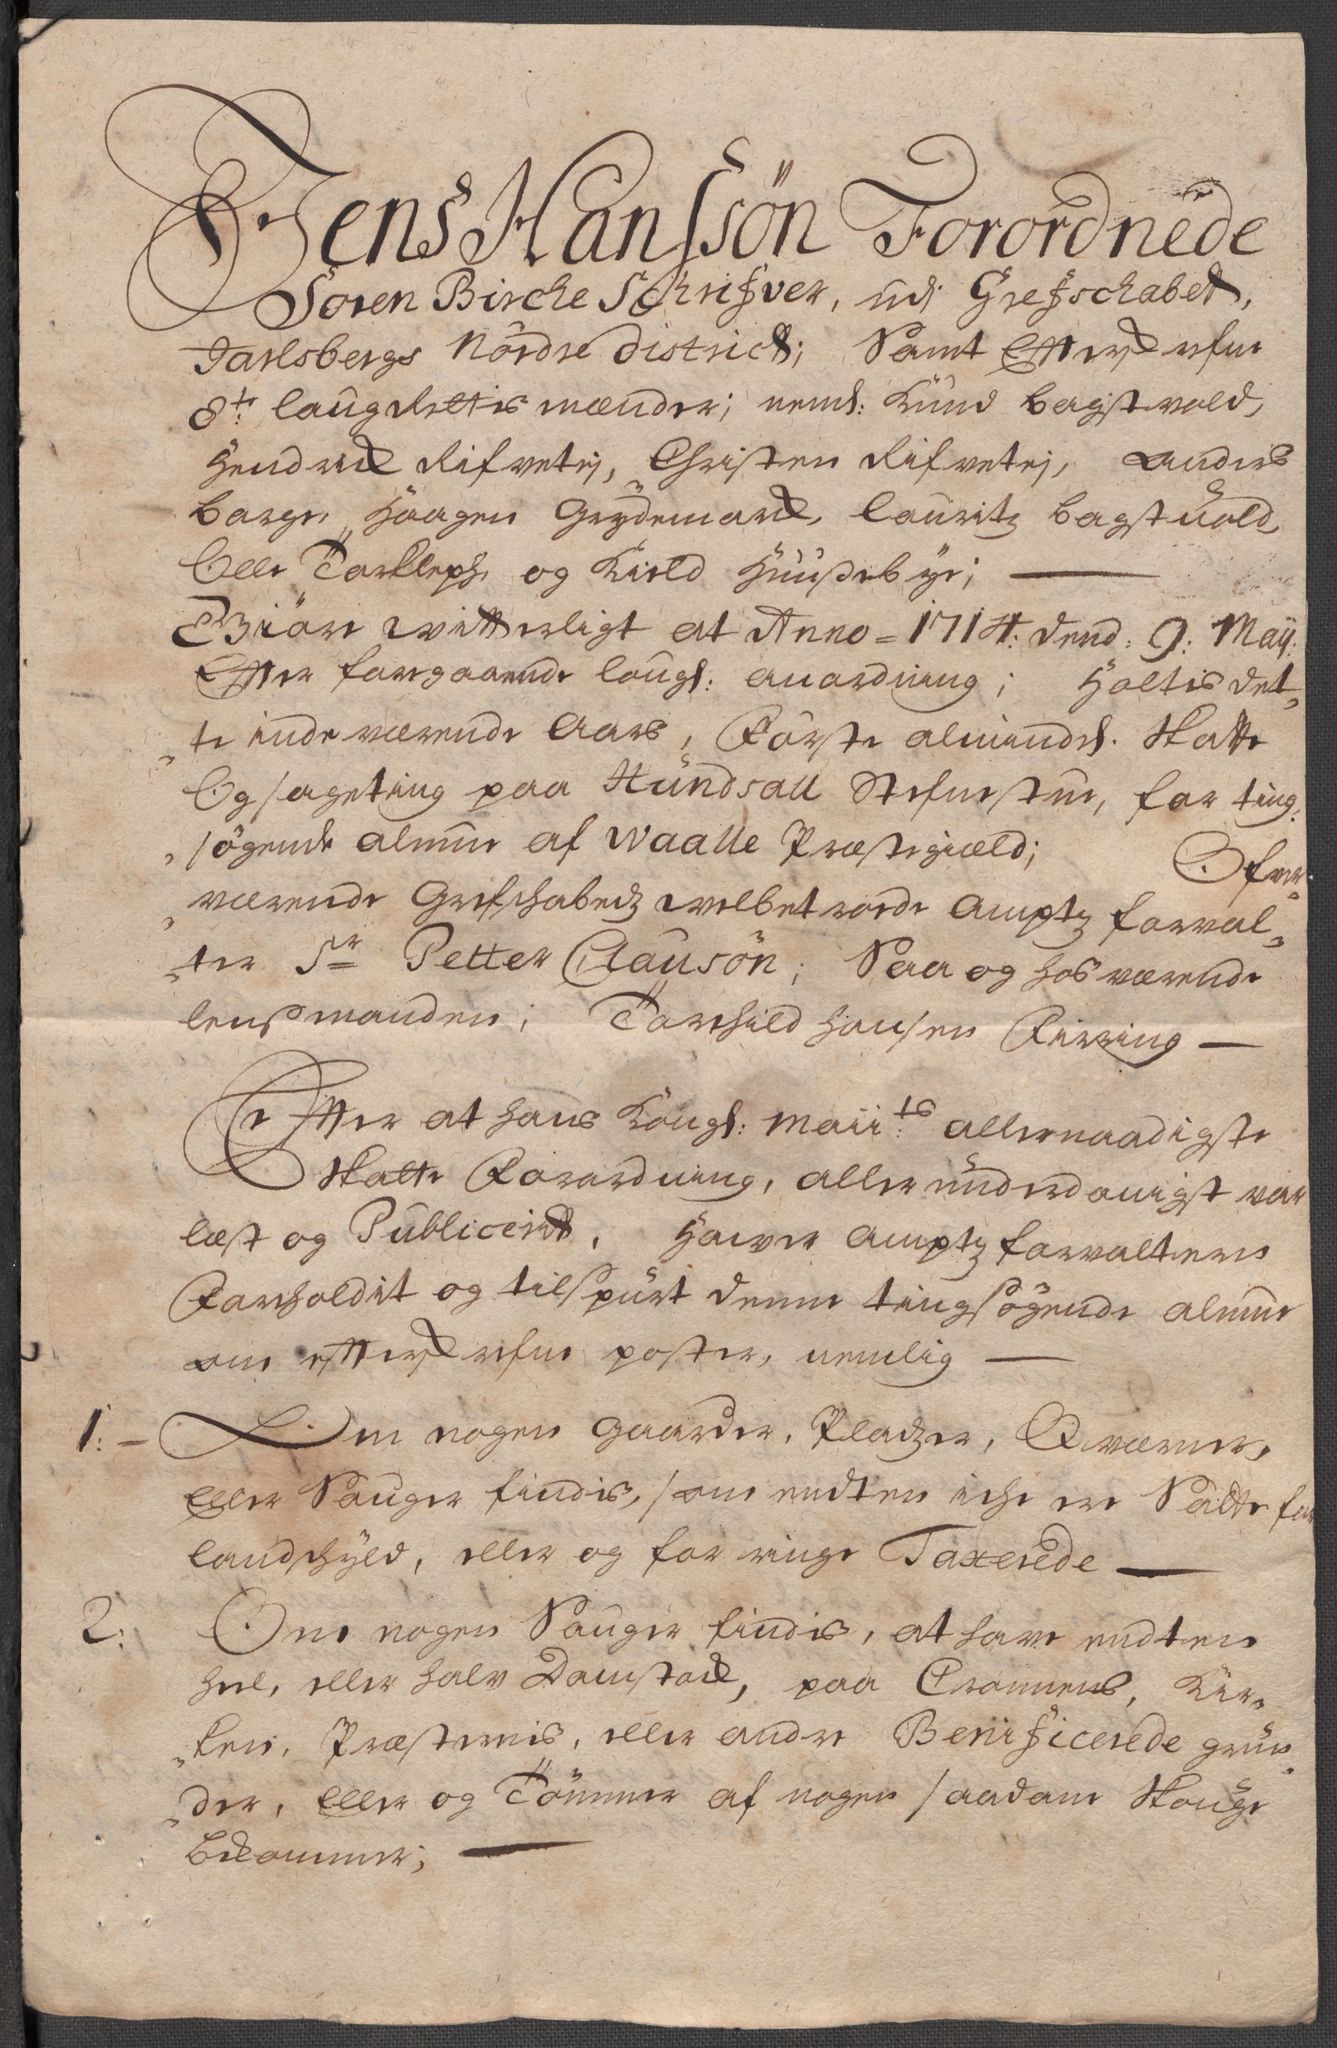 Jens Hanssön Forordnede
Soren Birche Schrifver, udj Grefschabet,
Jarlsbergs Nördre District; Samt Effterskrefne
8te laugRettis mænder; neml: Knud bagstvold,
Hendrick Rifvetej, Christen Rifvetej, anders
barge, Haagen Grydemark, lauritz bagstuold,
Olle Torkleph og Kield Huusebye;
Giöre witterligt at Anno = 1714: dend: 9: Maij:
Effter foregaaende lougl: anordning; Holtis det-
te indeværende aars, Förste almindel. Skatte
Og sageting paa Hundsall Stefnestue, for ting-
sögende almue af Waalle Præstegield; Ofver-
værende Grefschabetz welbetroede amptz forval-
ter Sr Petter Clausön; Saa og hos værende
lensmanden; Torchild Hansen Firring
Effter at hans Kongl: Maiits allernaadigste
Skatte Forordning, aller underdanigst var
læst og Publicerit, Hafver amptz forvalteren
Forholdet og tilspurt denne tingsögende almue
om effterskrefne poster, nemlig
1: Om nogen gaarder, Pladtzer, Qværner,
Eller Sauger findis, som endten iche ere Satte for
landschyld, eller og for ringe Taxerede
2: Om nogen Sauger findis, at have endten
heel, eller halv Damstock, paa Cronnens, Kir-
ken, Præsternis, eller andre Benificerede grun-
der, Eller og Tömmer af nogen saadane Skouge
bekommer;